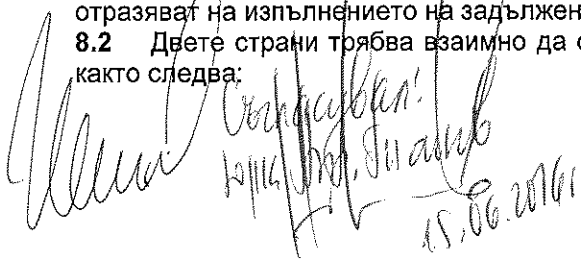 отразяват на изпълнението на задължен
8.2 Двете страни трябва взаимно да с
както следва:
Съгласувал:
15.06.2016г